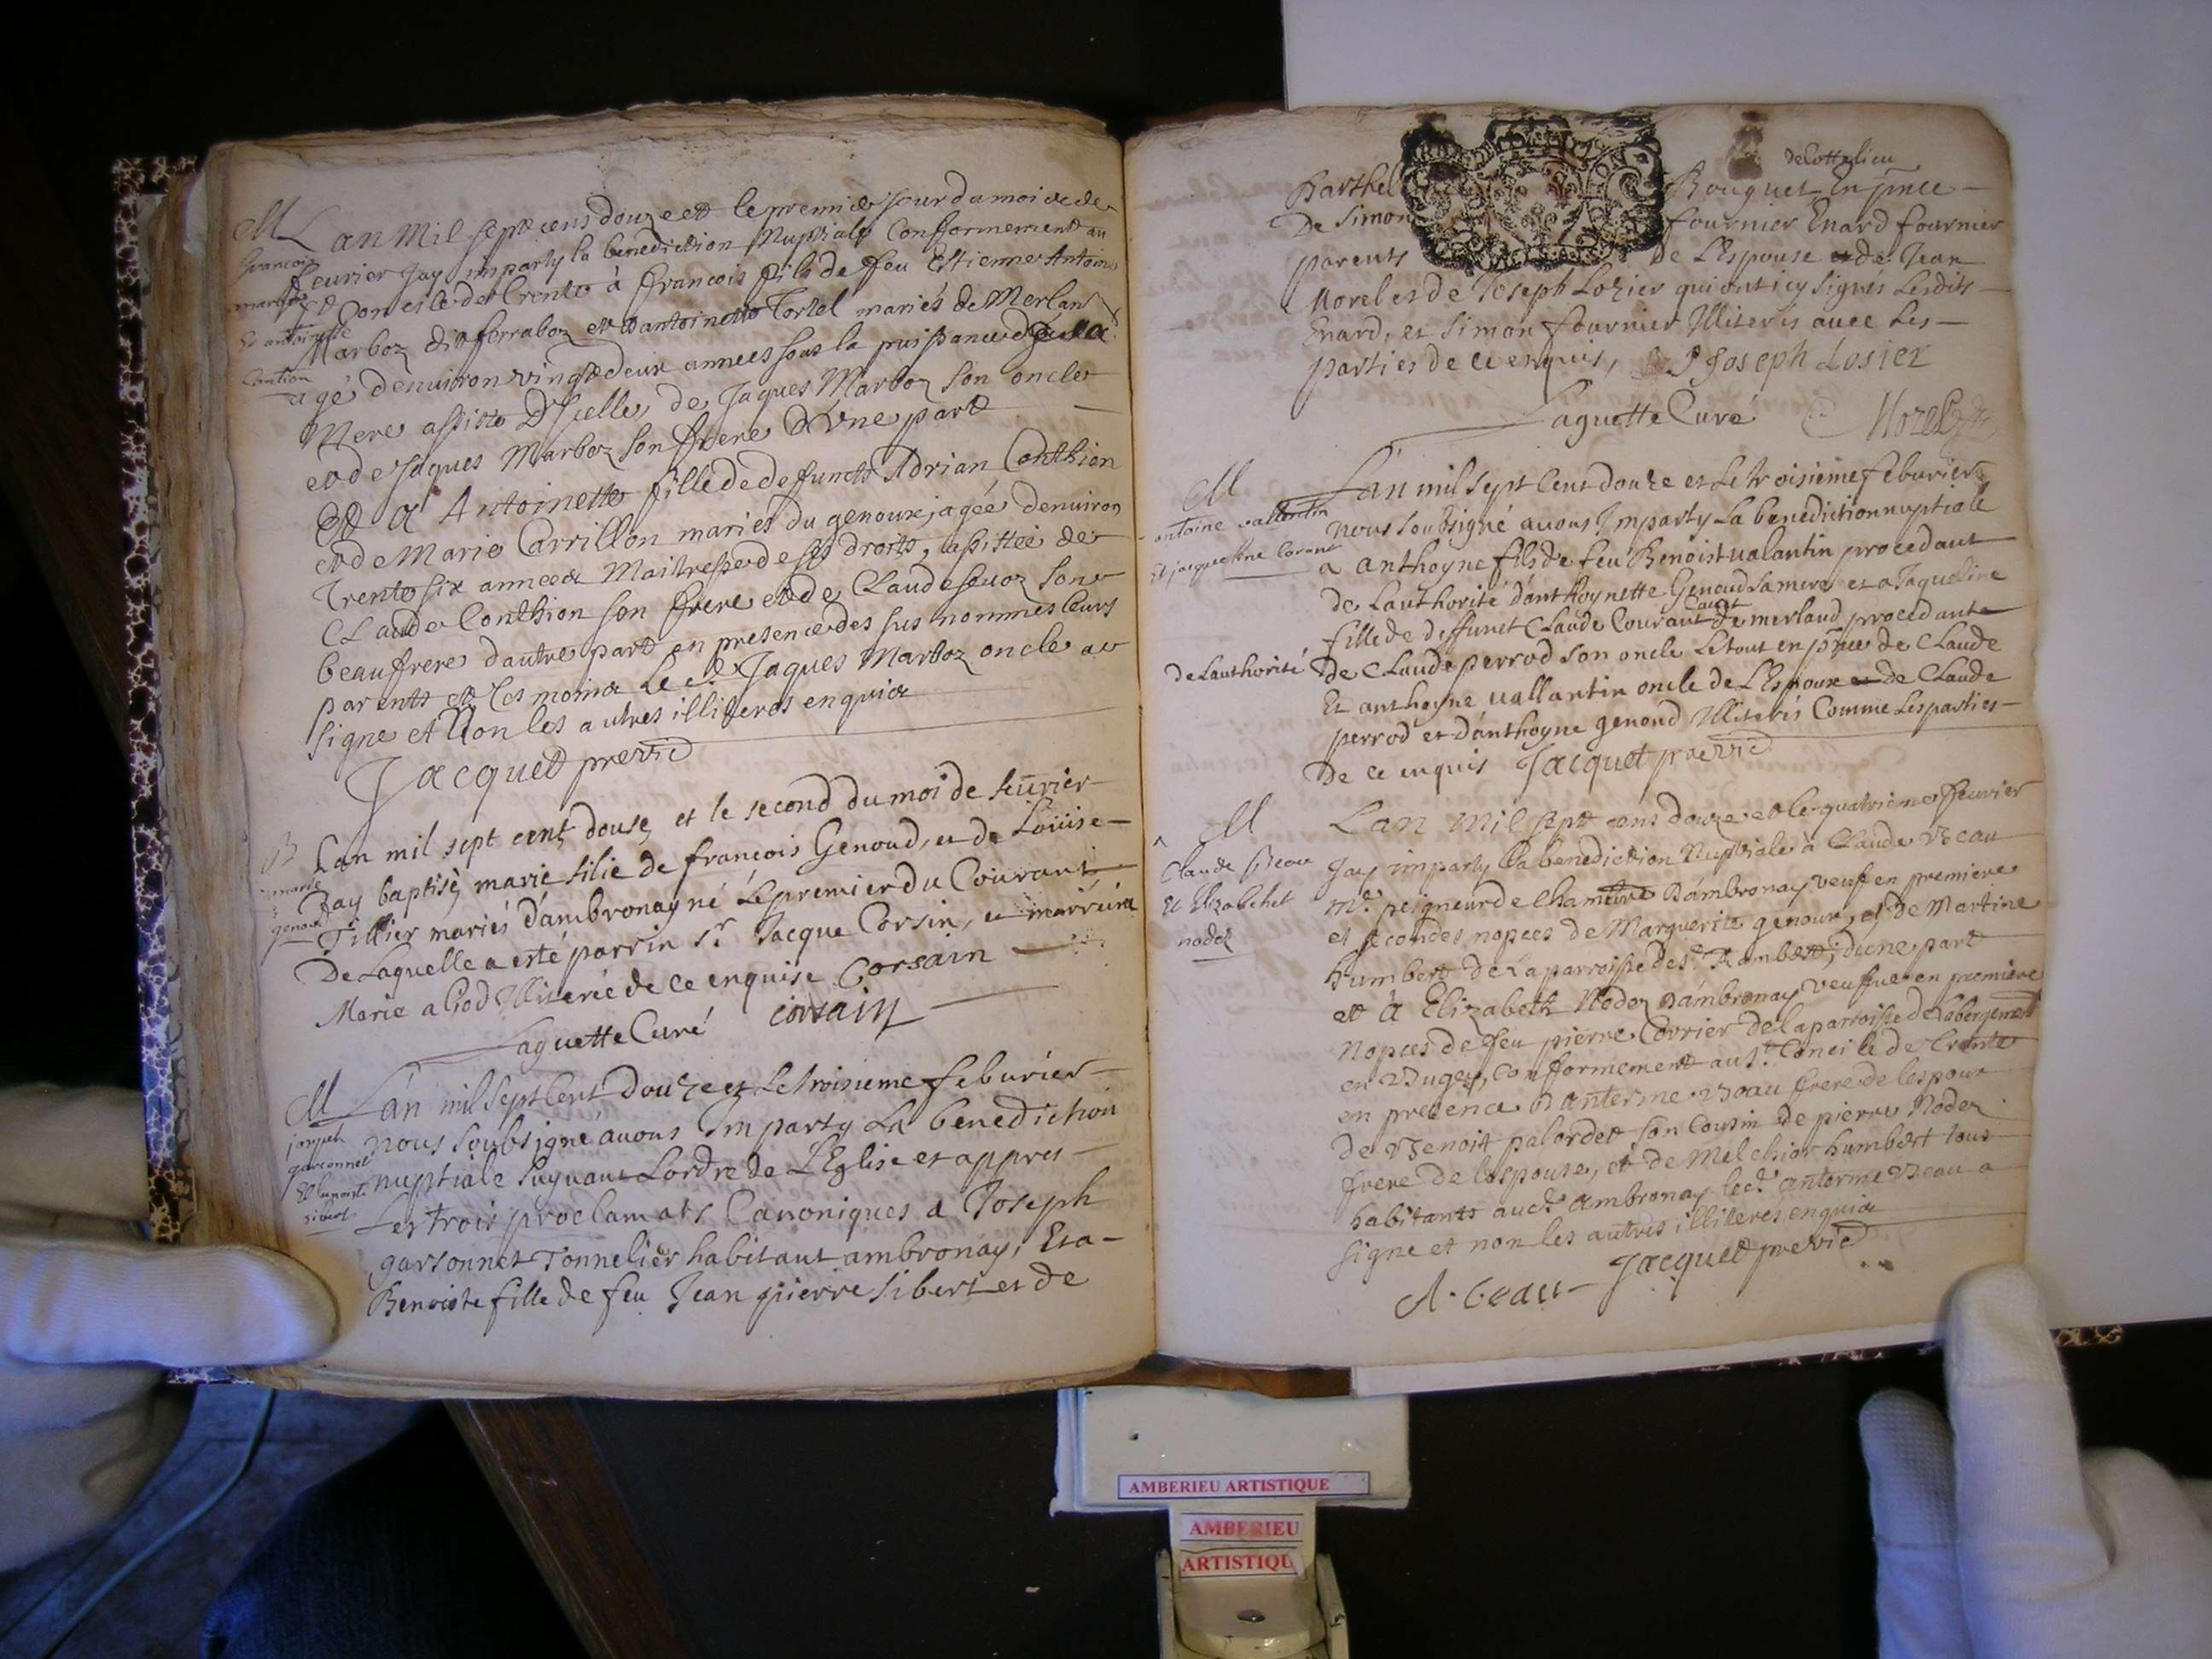 M
francois
marboz
Et antoinette
Contion
Lan Mil sept cens douze et le premier jour du mois de
feurier Jay imparty la benediction Nuptiale Conformement au
St Concile de Trente à francois fils de feu Estienne Antoine
Marboz et antoinette Tortel mariés de Merland
agé denuiron vingt deux annees sous la puissance de sa
Mere assisté D'Icelle, de Jaques Marboz son oncle
et de Jaques Marboz son frere d'Une part
Et a Antoinette fille de deffuncts Adrian Conthion
et de Marie Carrillon mariés du genoux, agée denuiron
Trente six annees Maitresse de ses droits, assistée de
Claude Conthion son frere et de Claude seuoz son
beaufrere dautre part en presence des sus nommés leurs
parents et tesmoins Le d. Jaques Marboz oncle a
signe et Non les autres illiteres enquis
Jacquet previc
B
marie
genoud
Lan mil sept cent douse, et le second du moi de feurier
Jay baptisé marie filie de francois Genoud, et de Loüise
Tillier mariés d'ambronay né Le premier du Courant
De Laquelle a esté parrin sr. Jacque Corsin, et marreine
Marie aliod Illiterée de ce enquise Corsain
Laguette Curé corsain
M
joseph
garconnet
Et benoiste
sibert
L'an mil Sept Cent Douze et Le troisieme feburier
nous soubsigné auons Imparty La benediction
nuptiale Suyuant Lordre de L'Eglise et appres
Les trois proclamats Canoniques a Joseph
garsonnet Tonnelier habitant ambronay, Et a
Benoiste fille de feu Jean pierre Sibert et de
de Cottelieu
Barthel Bouquet En pnce
De Simon fournier Enard fournier
parents De L'Espouse et de Jean
Morel et de Joseph Lozier qui ont icy signés Lesdits
Enard, et Simon fournier Illiterés auec Les
parties de ce enquis, J Joseph Losier
Laguette Curé Morel
M
antoine vallentin
Et jacqueline Corant
L'an mil sept Cent douze et Le troisieme feburier
nous soubsigné auons Imparty La benediction nuptiale
a anthoyne fils de feu Benoist ualantin procedant
de Lauthorité d'anthoynette Genoud sa mere et a Jaqueline
fille de deffunct Claude Courant de merland procedante
de Lauthorité De Claude perrod son oncle Le tout en pnce de Claude
Et anthoyne uallantin oncle de L'Espoux et de Claude
perrod et d'anthoyne genoud Illiterés Comme Les parties
De ce enquis Jacquet previc
M
Claude Beau
Et Elizabehet
nodez
Lan Mil sept cens douze et le quatrieme feurier
Jay imparty la benediction Nuptiale à Claude Beau
Me. peigneur de Chamure D'ambronay veuf en premiere
et secondes nopces de Marguerite genoux, et de Martine
humbert de la parroisse de st. Rambert; d'une part
et à Elizabeth Nodez D'ambronay veuffue en premiere
Nopces de feu pierre Corrier de la parroisse de Labergement
en Bugey, Conformement au St. Concile de Trente
en presence D'anterme Beau frere de lespoux
de Benoit palordet son Cousin de pierre Nodez
frere de lespouse, et de Melchior humbert tous
habitants aud. Ambronay led. anterme Beau a
signe et non les autres illiteres enquis
A. beau Jacquet previc
AMBERIEU ARTISTIQUE
AMBERIEU
ARTISTIQU